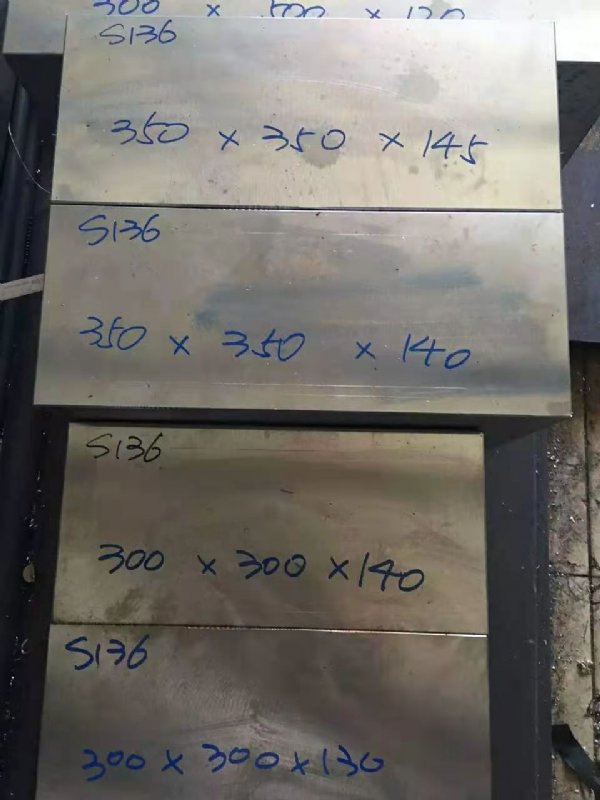 300 x 300 x 130
S136
350 x 350 x 145
S136
350 x 350 x 140
S136
300 x 300 x 140
S136
300 x 300 x 130